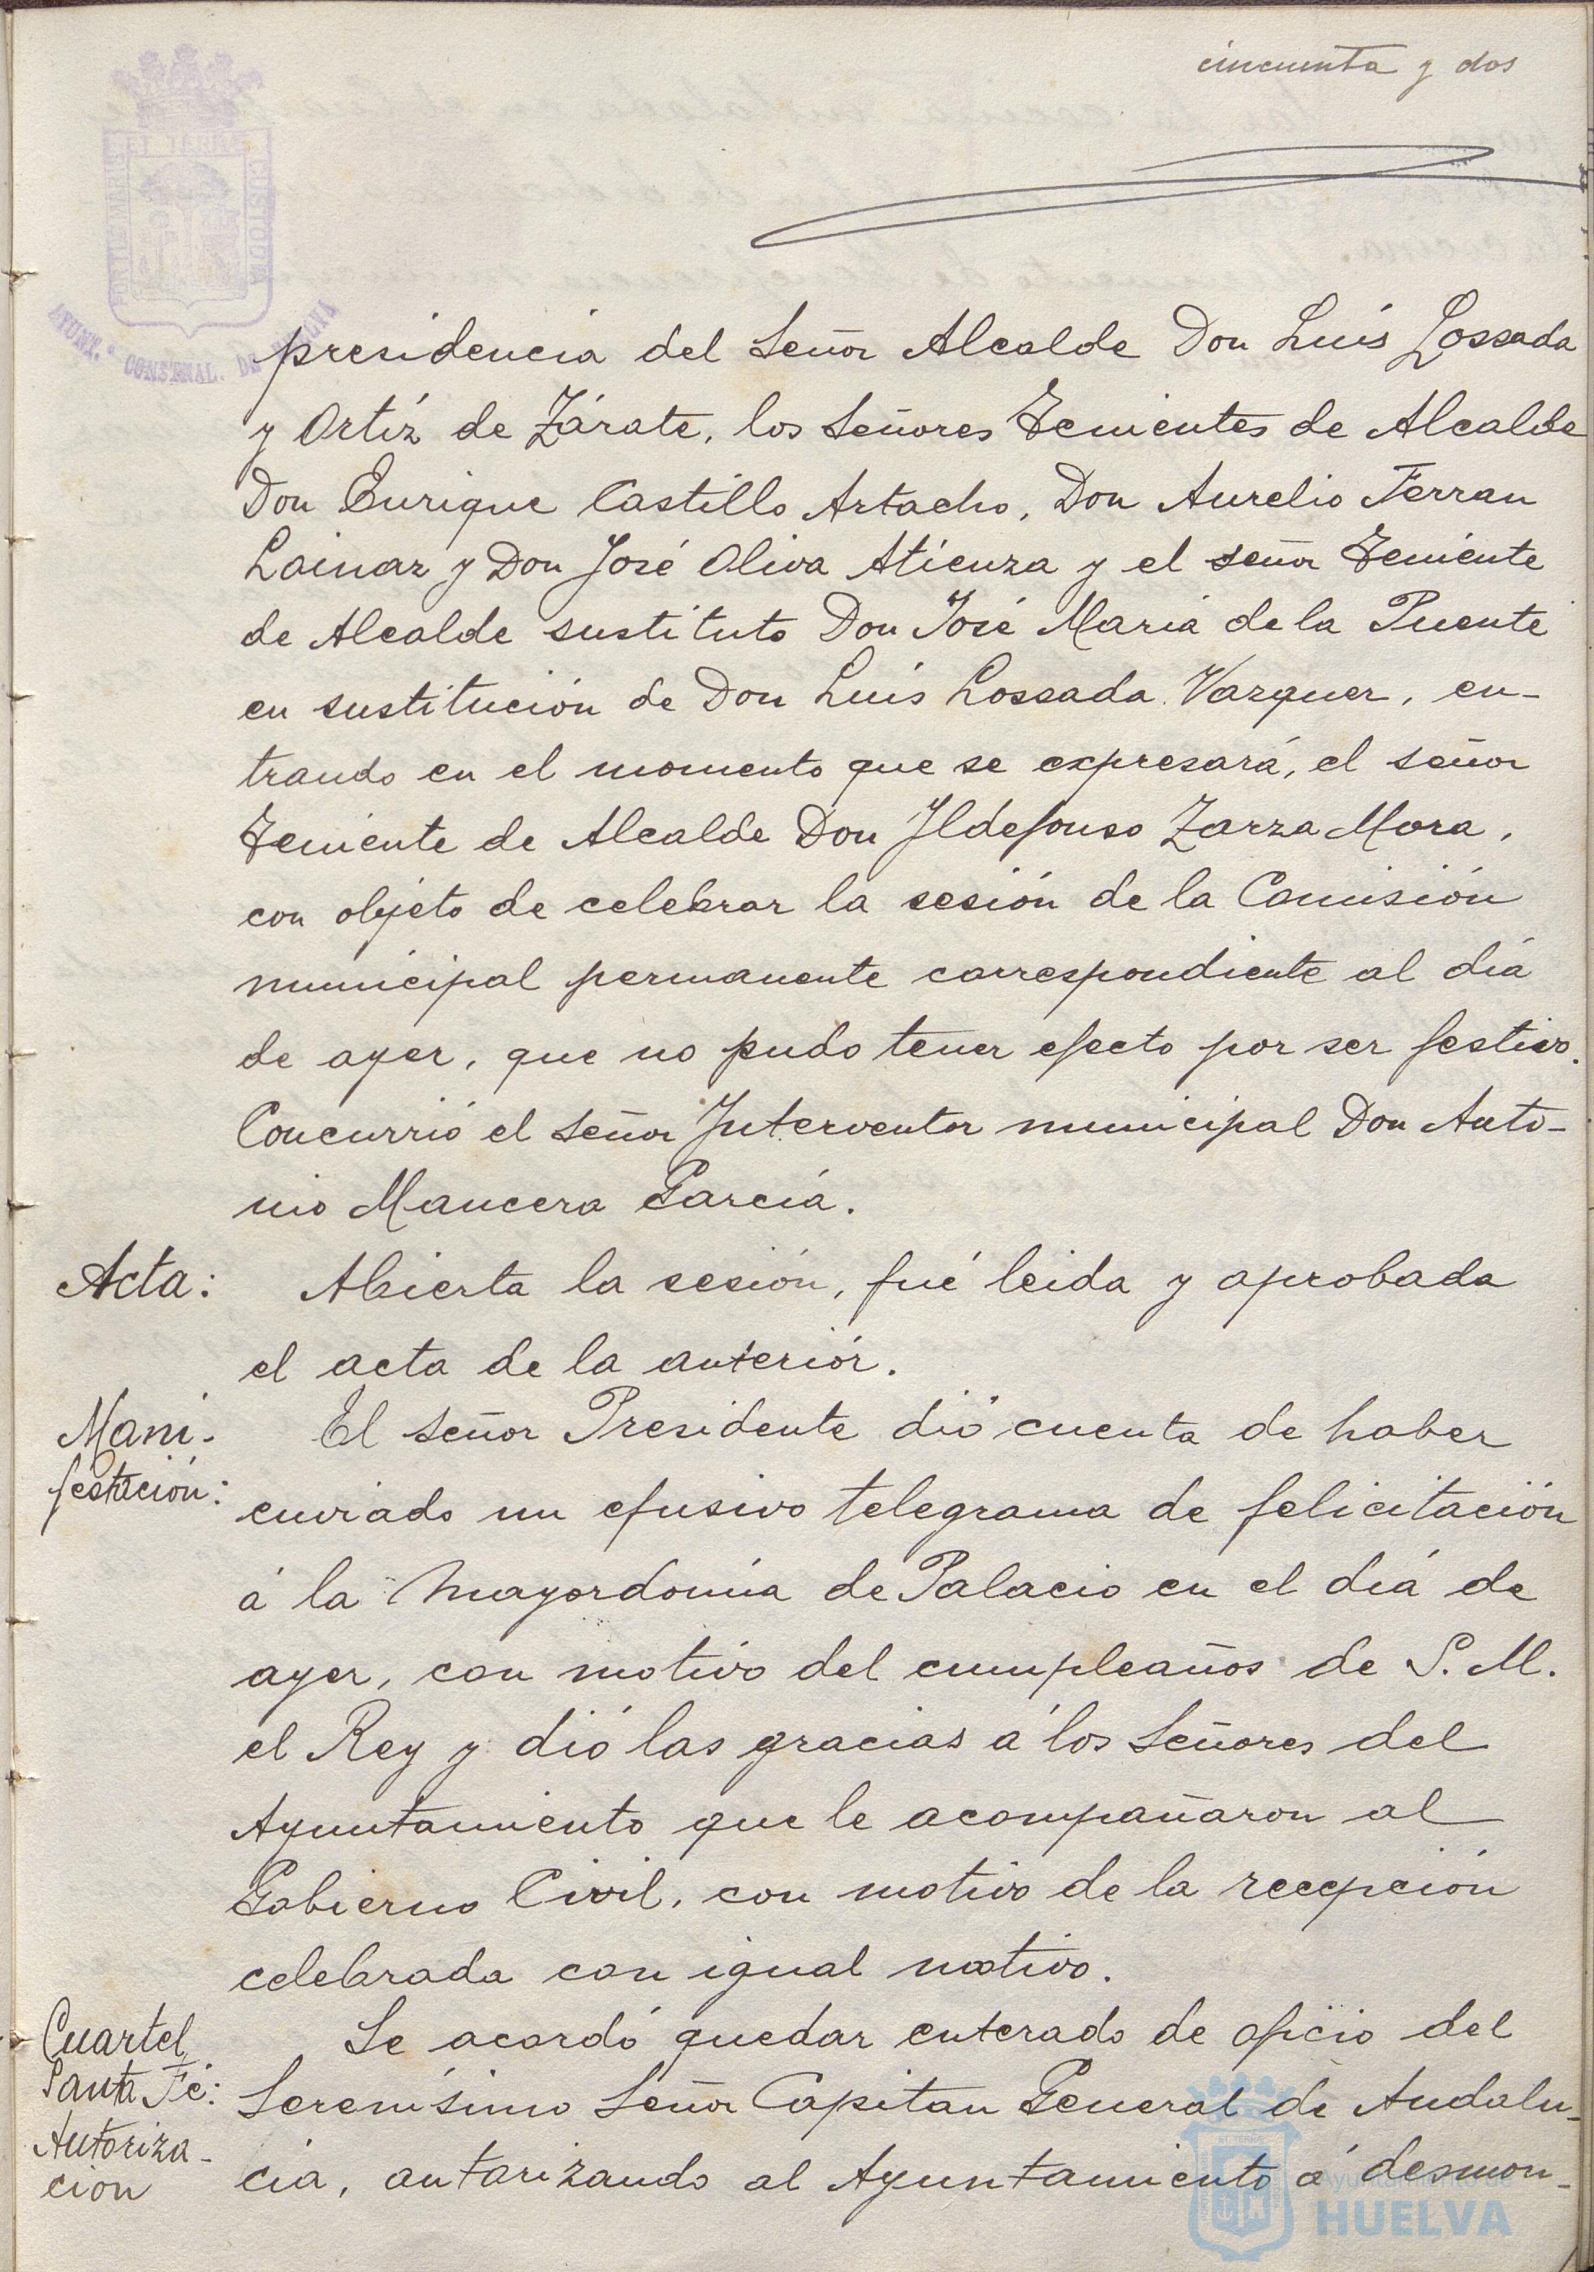 cincuenta y dos
presidencia del Señor Alcalde Don Luis Lossada
y Ortíz de Zárate, los Señores Tenientes de Alcalde
Don Enrique Castillo Artacho, Don Aurelio Ferran
Lainaz y Don José Oliva Atienza y el señor Teniente
de Alcalde sustituto Don José Maria de la Puente
en sustitución de Don Luis Lossada Vazquez, en-
trando en el momento que se expresará, el señor
Teniente de Alcalde Don Ildefonso Zarza Mora,
con objeto de celebrar la sesión de la Comisión
municipal permanente correspondiente al dia
de ayer, que no pudo tener efecto por ser festivo.
Concurrió el Señor Interventor municipal Don Anto-
nio Mancera García.
Acta: Abierta la sesión, fué leida y aprobada
el acta de la anteriór.
Mani-
festación:
El Señor Presidente dió cuenta de haber
enviado un efusivo telegrama de felicitación
á la Mayordomía de Palacio en el dia de
ayer, con motivo del cumpleaños de S. M.
el Rey y dió las gracias á los Señores del
Ayuntamiento que le acompañaron al
Gobierno Civil, con motivo de la recepción
celebrada con igual motivo.
Cuartel
Santa Fé:
Autoriza-
cion
Se acordó quedar enterado de oficio del
Serenísimo Señor Capitan General de Andalu-
cia, autorizando al Ayuntamiento á desmon-
AYUNT.º CONSTNAL. DE HUELVA
PORTUS MARIS ET TERRAE CUSTODIA
Ayuntamiento de
HUELVA